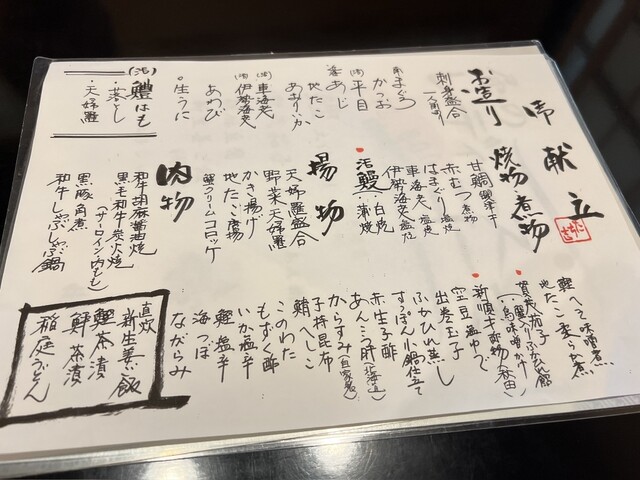 御献立
お造り
刺身盛合
一人前より
本まぐろ
かつお
(活)平目
あじ
地たこ
あおりいか
(活)車海老
(活)伊勢海老
あわび
生うに
(活)鱧はも
・落とし
・天婦羅
焼物 煮物
甘鯛
赤むつ 煮物
はまぐり 塩焼
車海老 塩焼
伊勢海老 塩焼
活鰻・白焼
・蒲焼
揚物
天婦羅盛合
野菜天婦羅
かき揚げ
地だこ唐揚
蟹クリームコロッケ
肉物
和牛胡麻醤油焼
黒毛和牛炭火焼
(サーロイン・内もも)
黒豚角煮
和牛しゃぶしゃぶ鍋
地たこ柔らか煮
賀茂茄子
新順才酢物(秋田)
空豆塩ゆで
出巻玉子
ふかひれ蒸し
すっぽん小鍋仕立て
赤生子酢
あん肝(北海道)
からすみ(自家製)
子持昆布
鯖へしこ
このわた
もずく酢
いか塩辛
鰹塩辛
海つぼ
ながらみ
直炊
新生姜ご飯
鰹茶漬
鯛茶漬
稲庭うどん